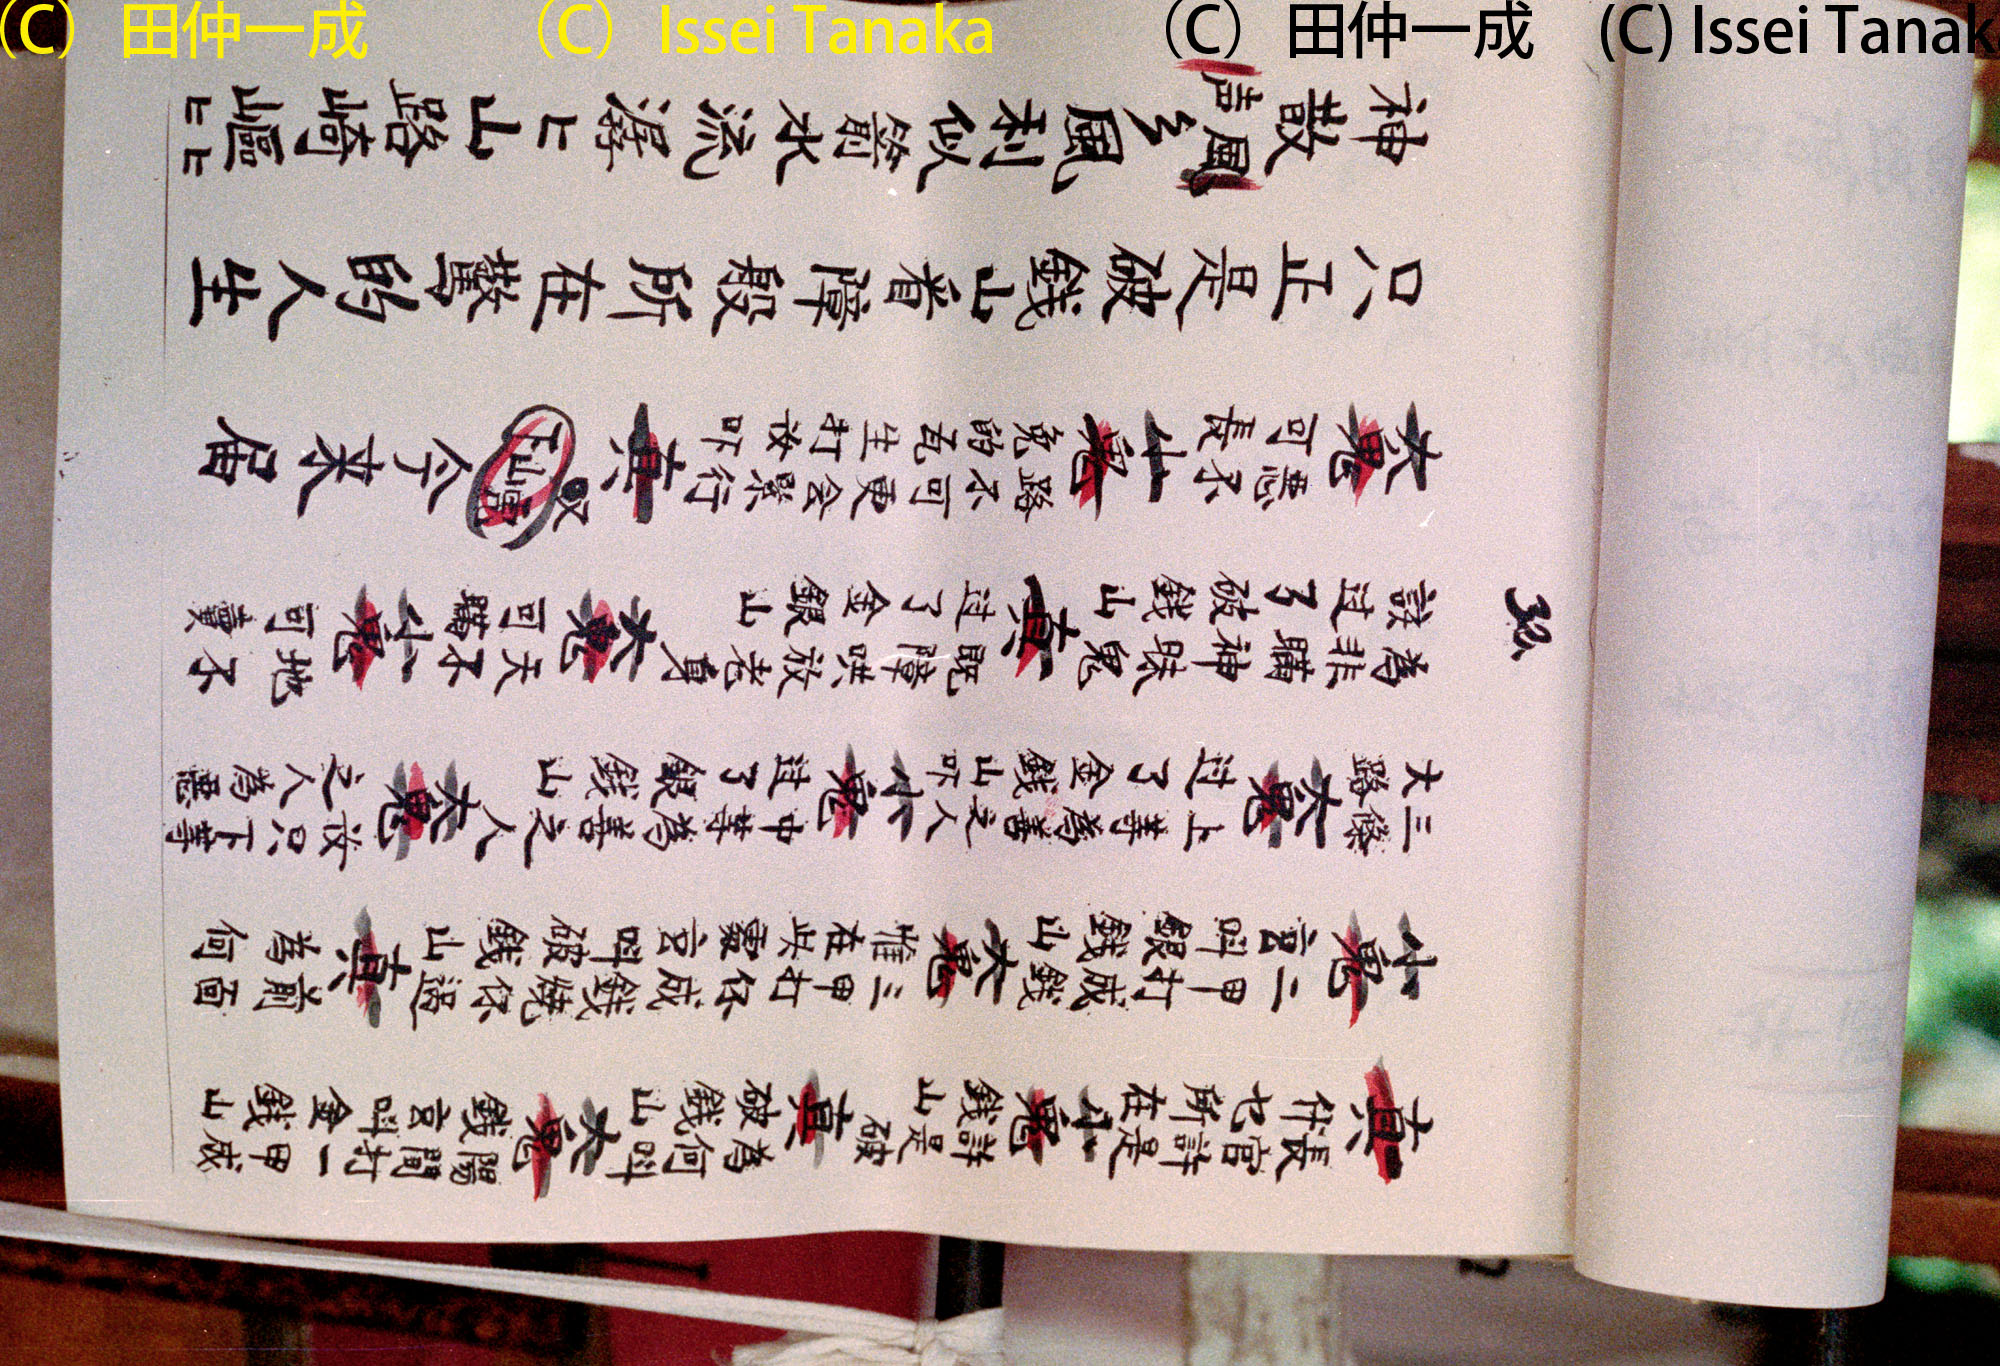 36
真 長官許是什乜所在 小鬼 許是破錢山 真 為何叫破錢山 大鬼 陽間打一甲成錢言叫金錢山
小鬼 二甲打成錢言叫銀錢山 大鬼 三甲打你成錢燒你過惟在此處言叫破錢山 真 前面為何
三條大路 大鬼 上等為善之人过了金錢山吓 小鬼 中等為善之人过了銀錢山 大鬼 汝只下等之人為惡
為非瞞神賕鬼說过了破錢山 真 既障哄放老身过了金銀山 大鬼 天不可瞞 小鬼 地不可賣
大鬼 惡不可長 小鬼 路不可更 行免的 生打汝吓 真 叹 下山虎 今來届
只正是破錢山者障殿所在驚的人生
神散風声多風利似箭水流滜ヒ山路崎嶇ヒヒ
(C) 田仲一成 (C) Issei Tanaka (C) 田仲一成 (C) Issei Tanak